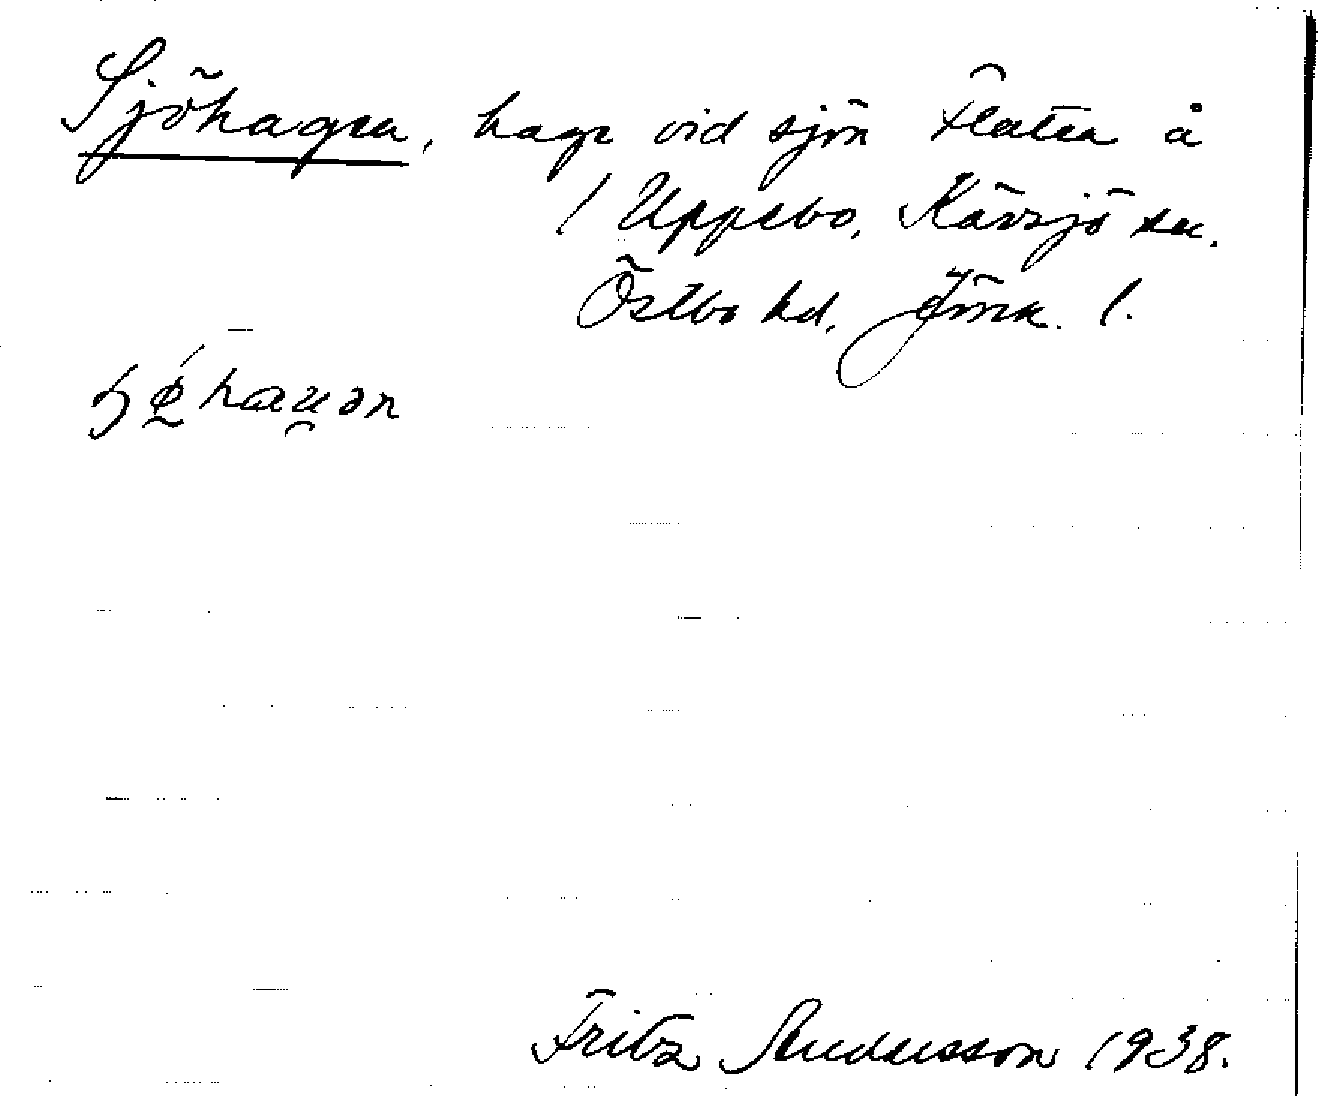 Sjöhagen, hage vid sjön Flaten å
1 Uppebo, Kävsjö sn.
Östbo hd, Jönk. l.
Fritz Andersson 1938.